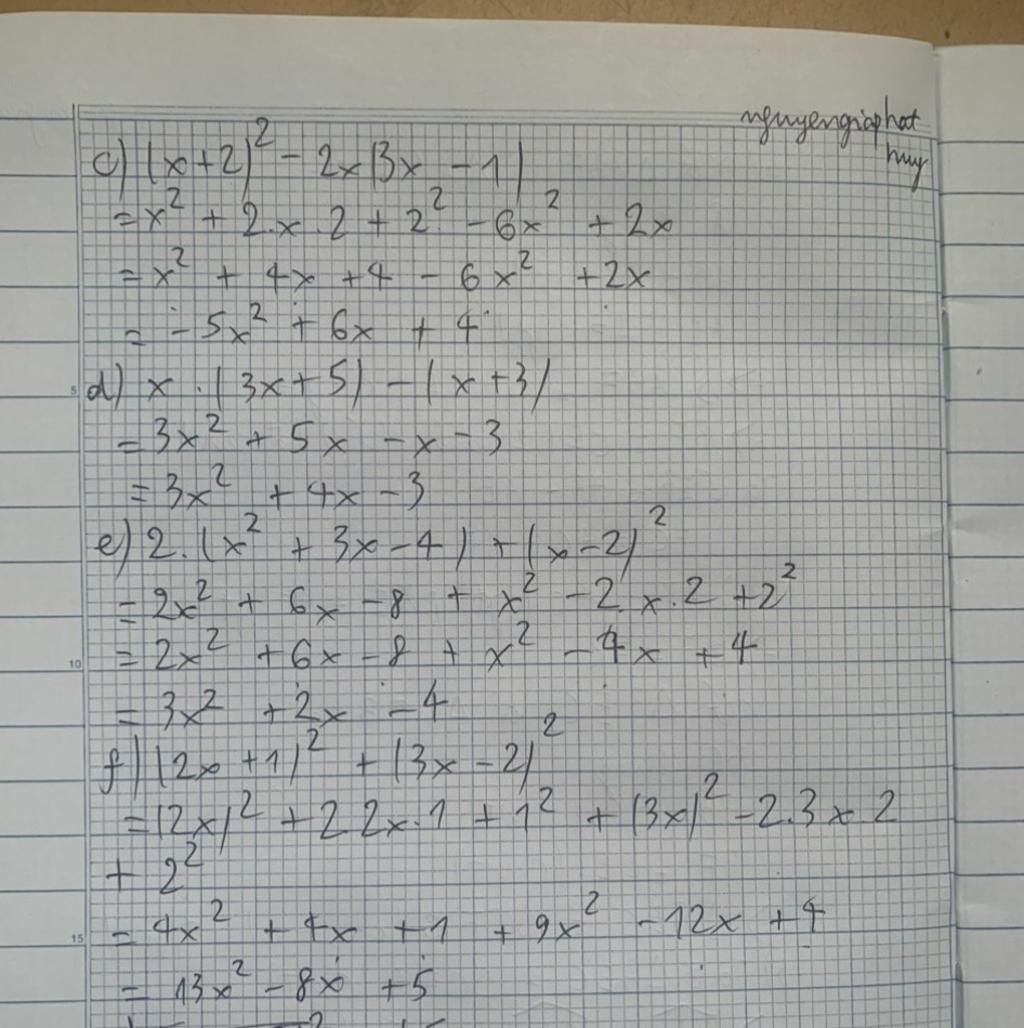 nguyengiaphat
huy
c) (x+2)² - 2x(3x - 1)
= x² + 2.x.2 + 2² - 6x² + 2x
= x² + 4x + 4 - 6x² + 2x
= -5x² + 6x + 4
5
d) x.(3x+5) - (x+3)
= 3x² + 5x - x - 3
= 3x² + 4x - 3
e) 2.(x² + 3x - 4) + (x-2)²
= 2x² + 6x - 8 + x² - 2.x.2 + 2²
10
= 2x² + 6x - 8 + x² - 4x + 4
= 3x² + 2x - 4
f) (2x+1)² + (3x-2)²
= (2x)² + 2 2x.1 + 1² + (3x)² - 2.3x 2
+ 2²
15
= 4x² + 4x + 1 + 9x² - 12x + 4
= 13x² - 8x + 5